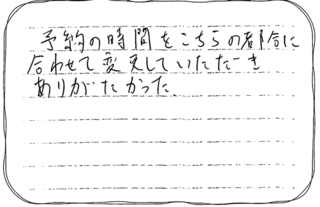 予約の時間をこちらの都合に
合わせて変更していただき
ありがたかった。